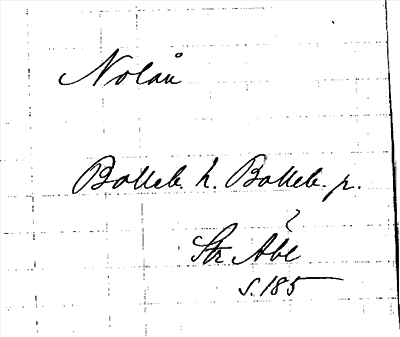 Nolån
Bolleb. h. Bolleb. p.
?
Str Åbl
s. 185